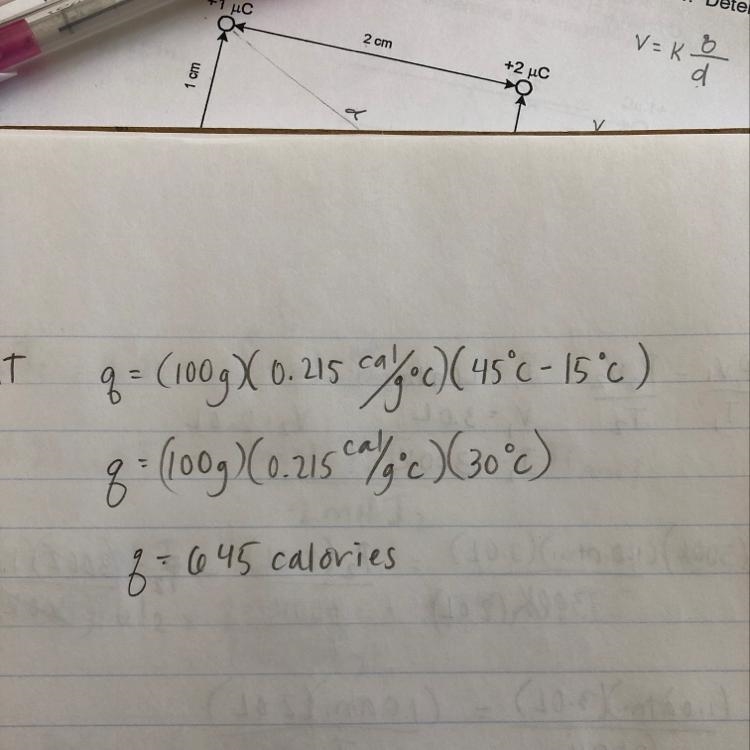 +1 μC
Deter
2 cm
V = K q/d
+2 μC
1 cm
r
V
T
q = (100g)(0.215 cal/g°C)(45°C - 15°C)
q = (100g)(0.215 cal/g°C)(30°C)
q = 645 calories